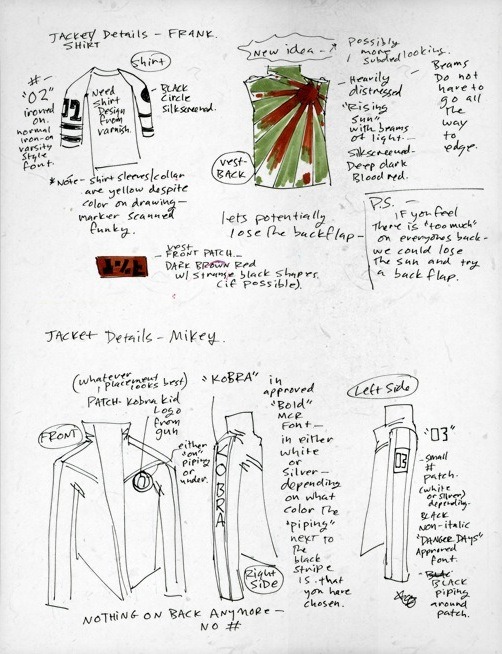 JACKET DETAILS - FRANK.
SHIRT
#-
"02"
ironed
on.
normal
iron-on
varsity
style
font.
Shirt
02
Need
Shirt
Design
From
varnish.
- BLACK
Circle
Silkscreened.
*Note - Shirt sleeves/collar
are yellow despite
color on drawing -
marker scanned
funky.
New idea -
Vest-
BACK
Possibly
more
subdued looking.
- Heavily
distressed
- "Rising
Sun"
with beams
of light.
- Silkscreened-
Deep dark
Blood red.
- Beams
Do not
have to
go all
the
way
to
edge.
vest
- FRONT PATCH -
DARK BROWN Red
w/ strange black shapes
(if possible).
lets potentially
lose the backflap -
P.S. -
if you feel
there is "too much"
on everyones back -
we could lose
the sun and try
a backflap.
JACKET DETAILS - MIKEY.
(whatever
placement
looks best)
PATCH - Kobra Kid
Logo
from
gun
either
"on"
piping
or
under.
FRONT
"KOBRA"
in
approved
"Bold"
MCR
Font -
in either
white
or
silver -
depending
on what
color the
"piping"
next to
the
black
stripe
is. that
you have
chosen.
KOBRA
Right
SIDE
Left Side
03
"03"
- small
#
patch.
(white
or silver)
depending.
- BLACK
NON-italic
"DANGER DAYS"
Approved
font.
- BLACK
piping
around
patch.
NOTHING ON BACK ANYMORE -
NO #